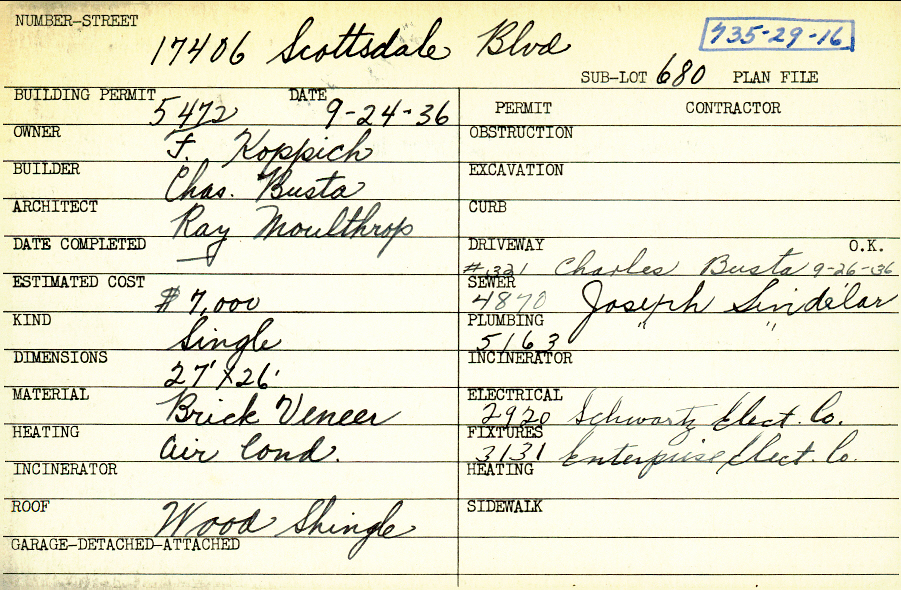 NUMBER-STREET
17406 Scottsdale Blvd
735-29-16
SUB-LOT 680 PLAN FILE
BUILDING PERMIT 5472 DATE 9-24-36
OWNER F. Koppich
BUILDER Chas. Busta
ARCHITECT Ray Moulthrop
DATE COMPLETED
ESTIMATED COST $7,000
KIND Single
DIMENSIONS 27' X 26'
MATERIAL Brick Veneer
HEATING Air Cond.
INCINERATOR
ROOF Wood Shingle
GARAGE-DETACHED-ATTACHED
PERMIT CONTRACTOR
OBSTRUCTION
EXCAVATION
CURB
DRIVEWAY O.K.
#321 Charles Busta 9-26-36
SEWER
4870 Joseph Sindelar
PLUMBING
5163 " "
INCINERATOR
ELECTRICAL
2920 Schwartz Elect. Co.
FIXTURES
3131 Enterprise Elect. Co.
HEATING
SIDEWALK